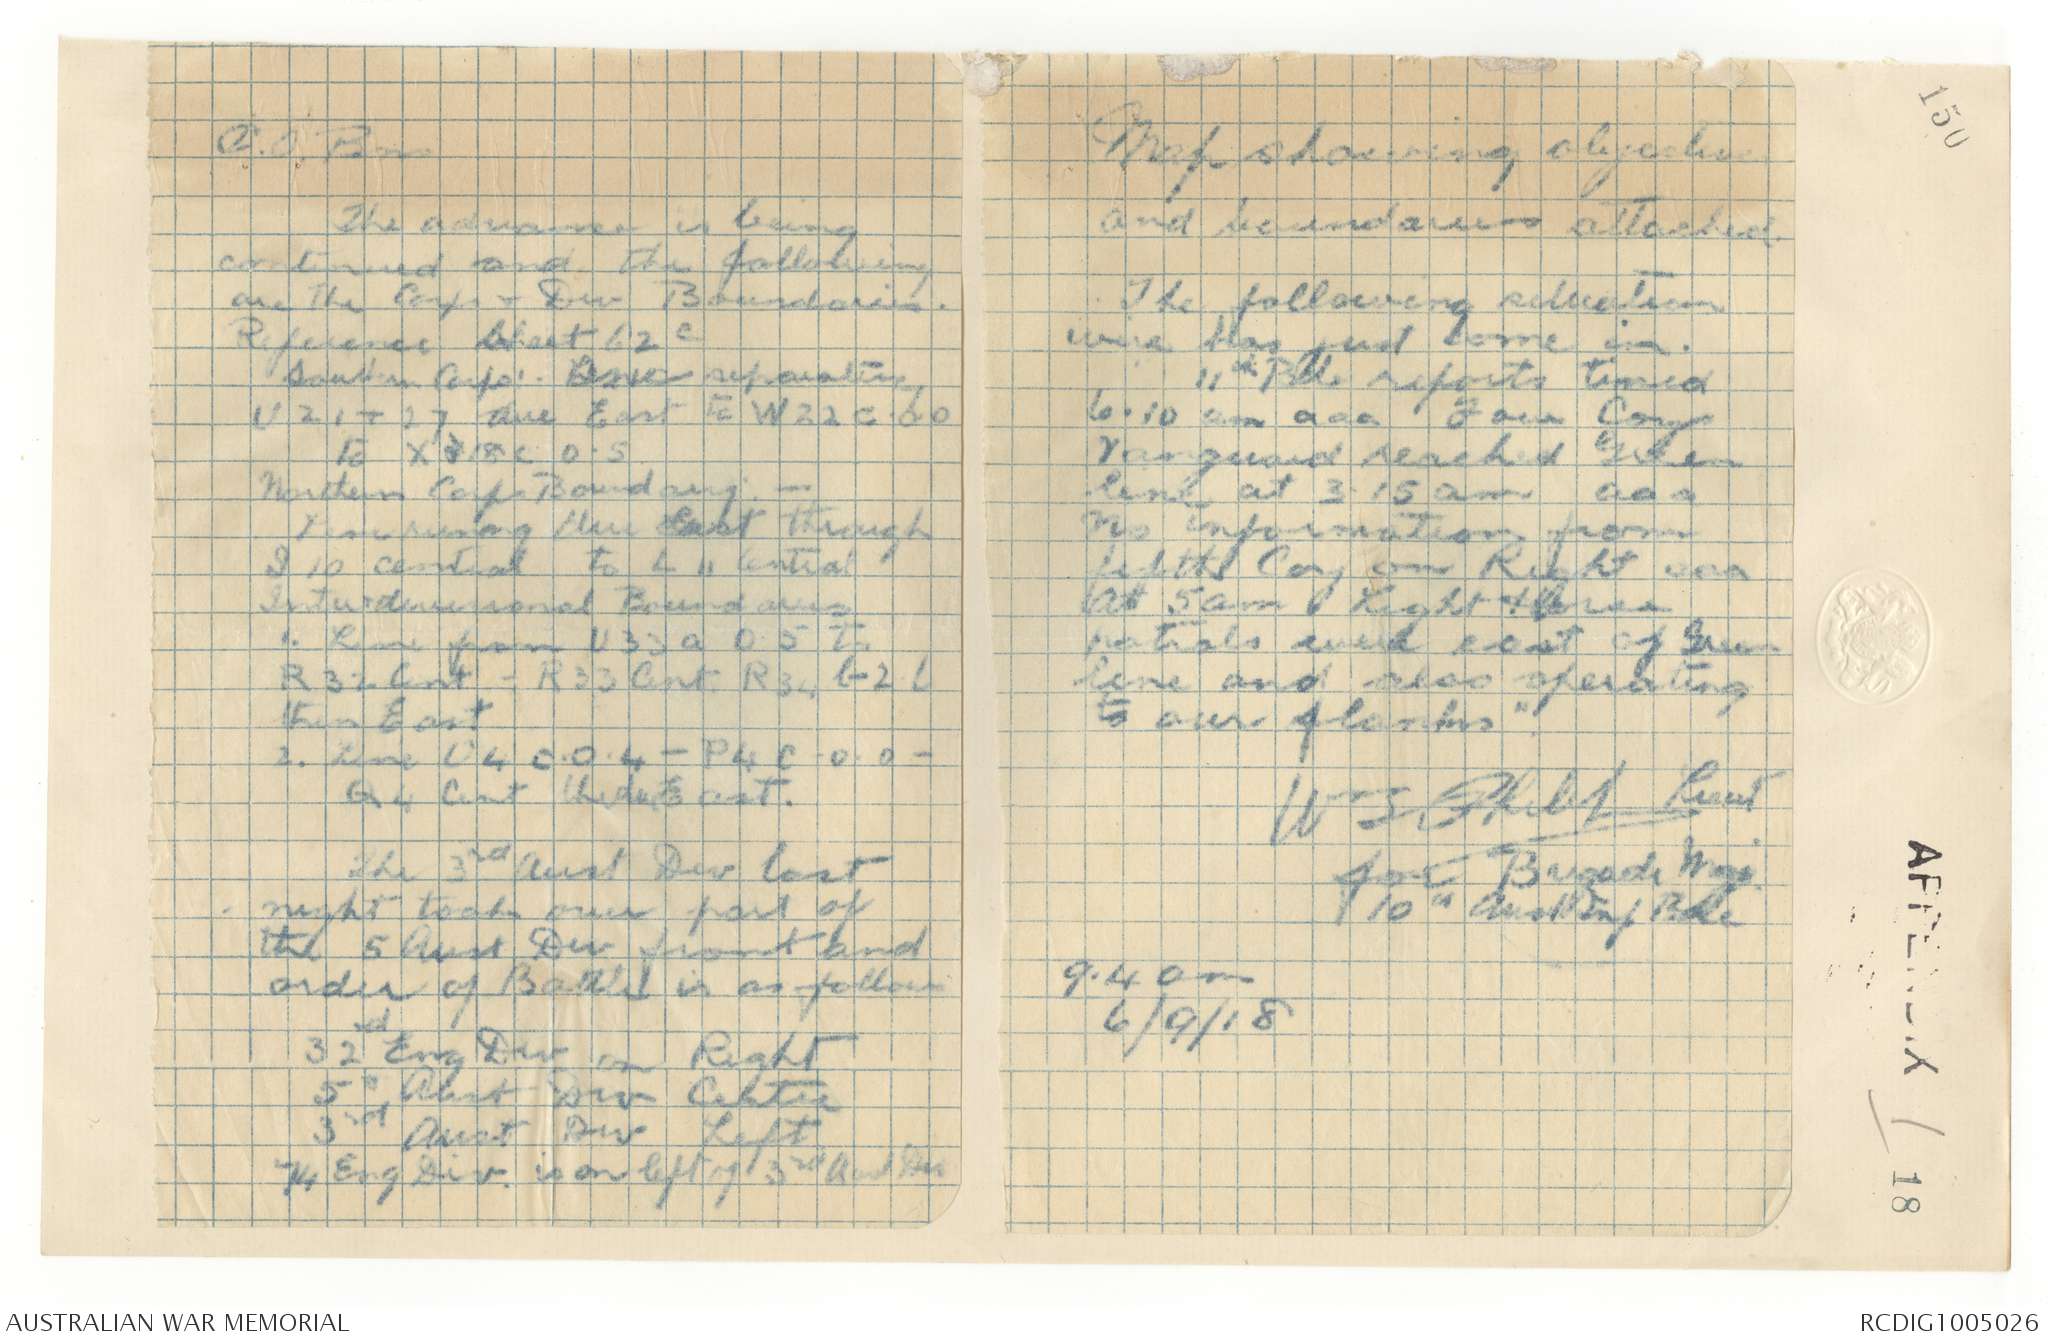 C.O. Bns
The advance is being
continued and the following
are the Corps + Div Boundaries.
Reference Sheet 62 c
Southern Corps:- separating
U 21 + 27 due East to W 22 c 0.0
to X 18 c 0.5
Northern Corps Boundary. —
Line running due East through
I 10 central to L 11 central
Inter-divisional Boundaries
1. Line from U 33 a 0.5 to
R 32 Cent - R 33 Cent. R 34 b 2.6
then East
2. Line U 4 c.0.4 - P 4 c.0.0 -
Q 4 Cent then due East.
The 3rd Aust Div last
night took over part of
the 5 Aust Div front and
order of Battle is as follows
32nd Eng Div on Right
5th Aust Div Centre
3rd Aust Div Left
74 Eng Div. is on left of 3rd Aust Div
Map showing objective
and boundaries attached.
The following situation
wire has just come in.
"11th Bde reports timed
6.10 am aaa Four Coy
Vanguard reached Green
line at 3.15 am aaa
No information from
fifth Coy on Right aaa
At 5 am Light Horse
patrols were east of Green
line and also operating
to our flanks".
Lieut
for Brigade Maj.
10th Aust Inf Bde
9.40 am
6/9/18
150
APPENDIX 1
18
AUSTRALIAN WAR MEMORIAL
RCDIG1005026